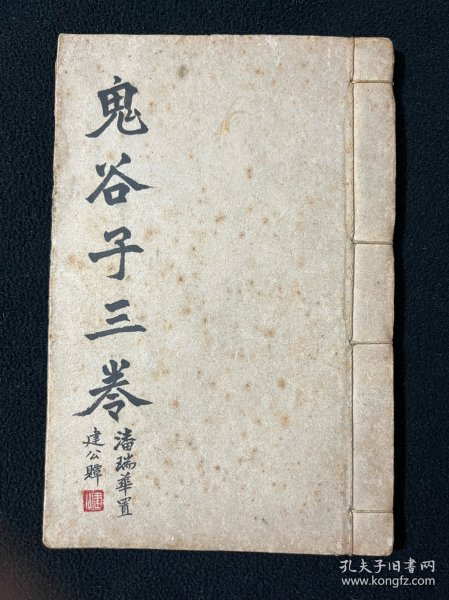 鬼谷子三卷
潘瑞華置
建公贉
孔夫子旧书网
www.kongfz.com